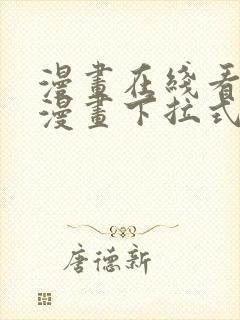 漫畫在綫看
漫畫下拉式
唐德新